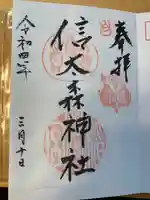 奉拝
信太森神社
令和四年
二月十日